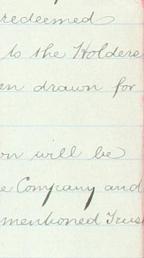 redeemed
to the Holders
en drawn for
on will be
e Company and
mentioned Trus